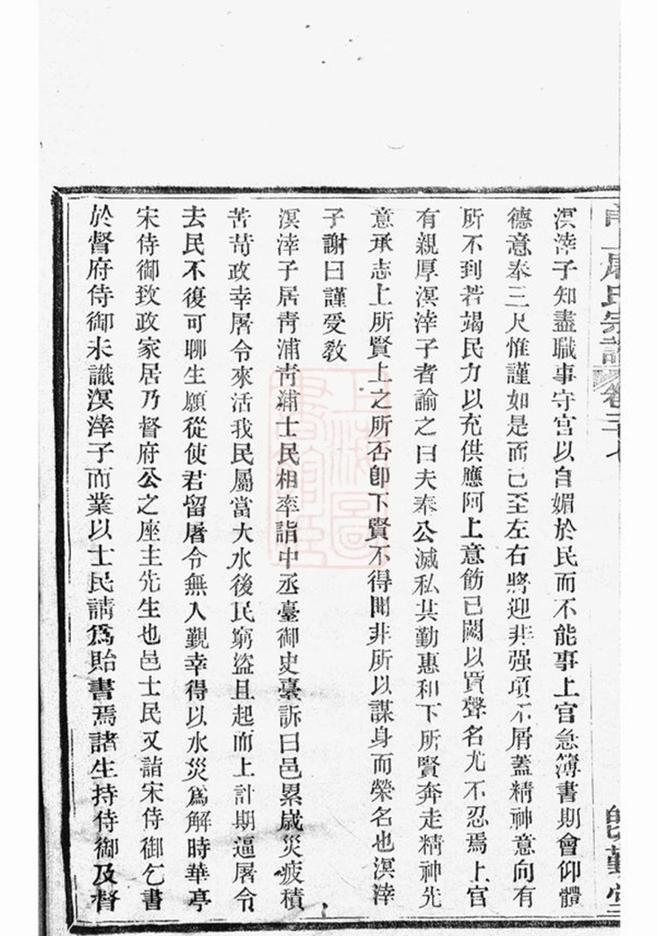 甬上屠氏宗譜 卷三十七
既勤堂
溟涬子知盡職事守官以自媚於民而不能事上官急簿書期會仰體
德意奉三尺惟謹如是而已至左右將迎非强項不屑蓋精神意向有
所不到若竭民力以充供應阿上意飭己闕以買聲名尤不忍焉上官
有親厚溟涬子者諭之曰夫奉公滅私共勤惠和下所賢奔走精神先
意承志上所賢上之所否卽下賢不得聞非所以謀身而榮名也溟涬
子謝曰謹受教
溟涬子居青浦青浦士民相率詣中丞臺御史臺訴曰邑累歲災疲積
苦苛政幸屠令來活我民屬當大水後民窮盜且起而上計期逼屠令
去民不復可聊生願從使君留屠令無入觐幸得以水災爲解時華亭
宋侍御致政家居乃督府公之座主先生也邑士民又詣宋侍御乞書
於督府侍御未識溟涬子而業以士民請爲貽書焉諸生持侍御及督